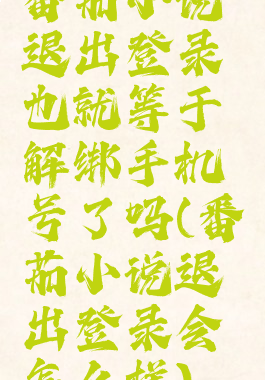 番茄小说
退出登录
也就等于
解绑手机
号了吗(番
茄小说退
出登录会
怎么样)